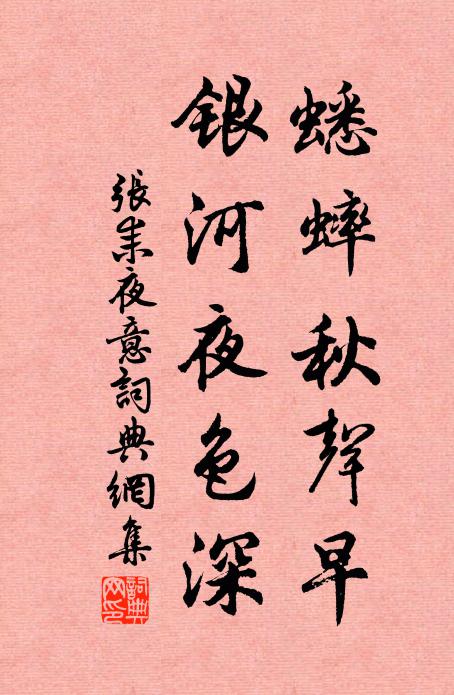 蟋蟀秋聲早
銀河夜色深
張耒夜意詞典網集
詞典网印